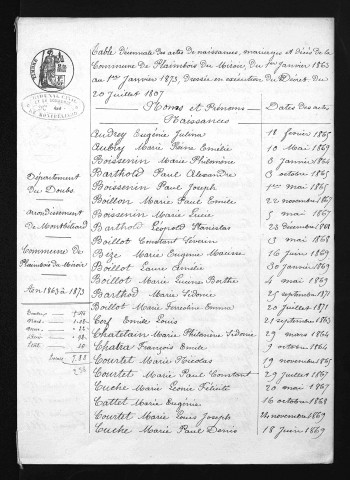 Table décennale des actes de naissances, mariages et décès de la
Commune de Plaimbois du Miroir, du 1er Janvier 1863
au 1er Janvier 1873, dressée en exécution du Décret du
20 Juillet 1807
Noms et Prénoms
Dates des actes
Naissances
Département
du Doubs
arrondissement
de Montbéliard
Commune de
Plaimbois du Miroir
An 1863 à 1873
Audrey Eugénie Julina 18 février 1865
Aubry Marie Pierre Emélie 10 Mai 1869
Boissenin Marie Philomène 3 Janvier 1864
Barthold Paul Alexandre 3 octobre 1865
Boissenin Paul Joseph 1er mai 1865
Boillon Marie Paul Emile 22 novembre 1865
Boissenin Marie Lucie 5 mai 1867
Barthold Léopold Stanislas 23 Décembre 1868
Boillot Constant Séverin 13 mai 1868
Bèze Marie Eugène Maurice 16 Juin 1869
Boillot Laure Amélie 30 Janvier 1869
Boillot Marie Berthe 4 mai 1869
Barthod Marie Sidonie 25 septembre 1871
Boillot Marie Ernestine 20 Juillet 1871
Cerf Emile Louis 21 septembre 1863
Chatelain Marie Philomène Sidonie 29 mars 1864
Chatia François Emile 9 octobre 1864
Courtet Marie Nicolas 19 novembre 1865
Courtet Marie Paul Constant 29 Juillet 1867
Cuche Marie Léonie Félicité 20 mai 1867
Cattet Marie Eugénie 16 octobre 1868
Courtet Marie Louis Joseph 24 novembre 1869
Cuche Marie Paul Denis 18 Juin 1869